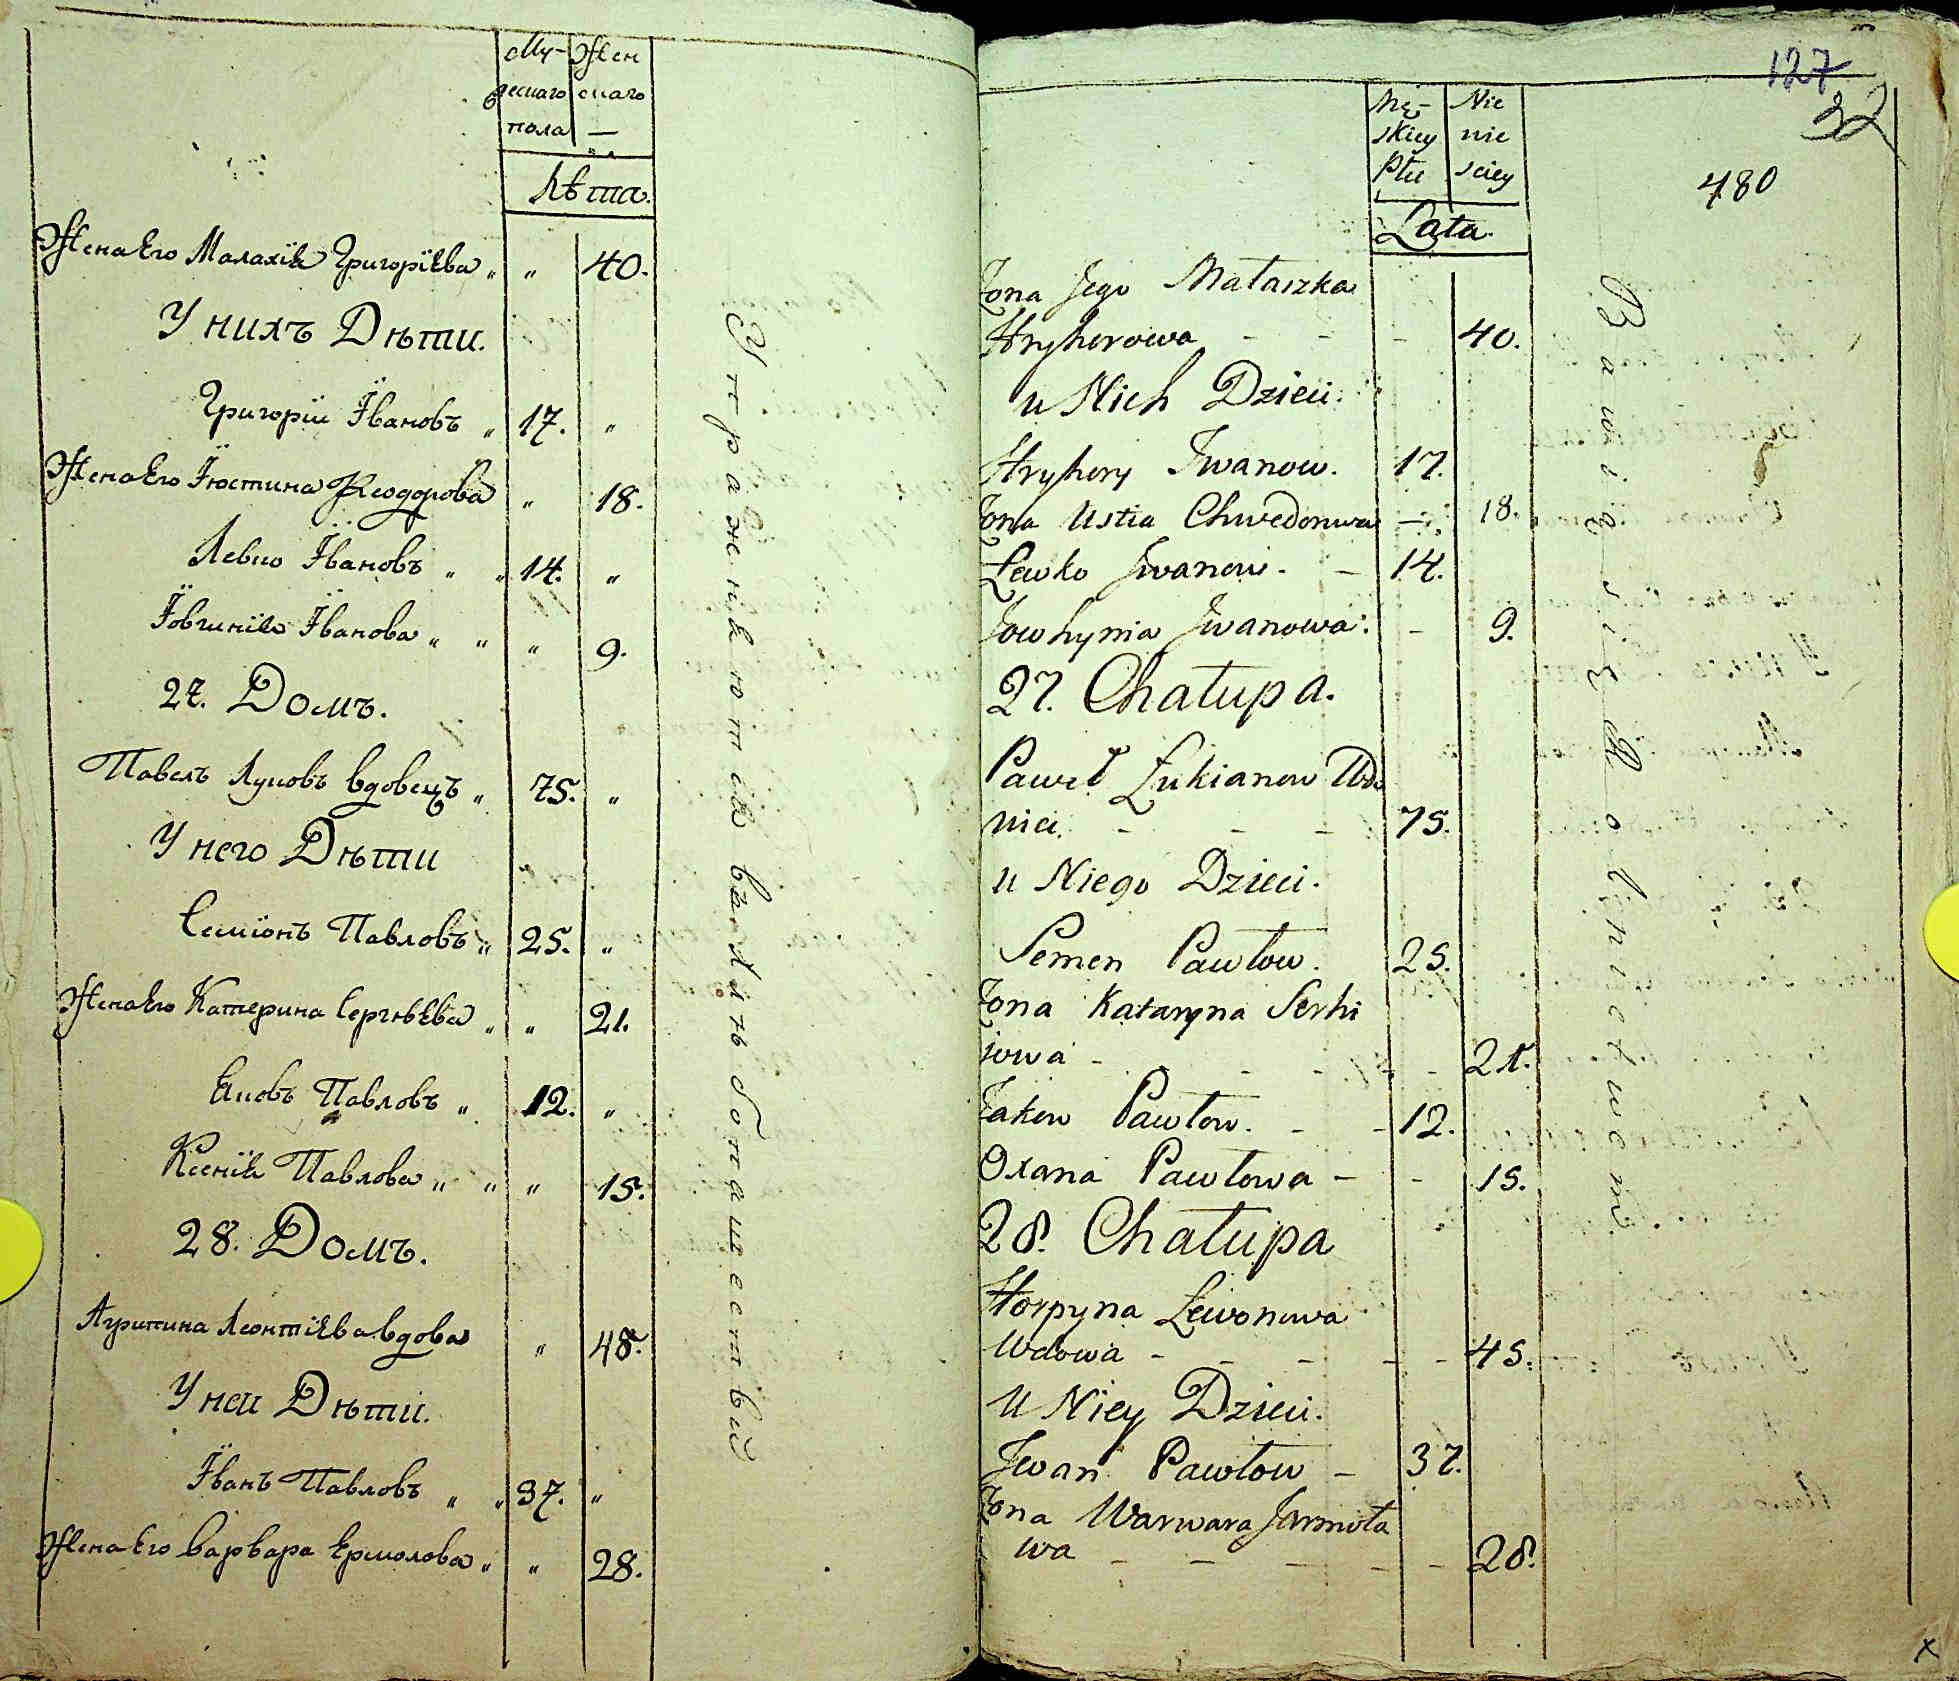 Му-
жескаго
пола
Жен
скаго
Лѣта.
Жена Его Малахія Григоріева „ „ 40.
У нихъ Дѣти.
Григорій Ївановъ „ 17. „
Жена Его Їюстина Ѳеодорова „ 18.
Левко Ївановъ „ „ 14. „
Їовгинія Їванова „ „ „ 9.
27. Домъ.
Павелъ Луковъ вдовецъ „ 75. „
У него Дѣти
Семіонъ Павловъ „ 25. „
Жена Его Катерина Сергѣева „ „ 21.
Яковъ Павловъ „ 12. „
Ксенія Павлова „ „ „ 15.
28. Домъ.
Агрипина Леонтіева вдова „ 45.
У неи Дѣти.
Їванъ Павловъ „ „ 37. „
Жена Его Варвара Ермолова „ „ 28.
Упражняются въ хлѣбопашествѣ
127
32
480
Mę-
skiey
Płci
Nie
wie
sciey
Lata.
Żona Jego Małaszka
Hryhorowa - - - 40.
u Nich Dzieci.
Hryhory Iwanow. 17.
Żona Ustia Chwedorowa - 18.
Lewko Iwanow. - 14.
Jowhynia Iwanowa. - 9.
27. Chałupa.
Paweł Łukianow Wdo
wiec. - - - 75.
u Niego Dzieci.
Semen Pawłow. 25.
Żona Kataryna Serhi
jowa - - - - 21.
Jakow Pawłow. - - 12.
Oxana Pawłowa - - 15.
28. Chałupa
Horpyna Lewonowa
Wdowa - - - - - 45.
u Niey Dzieci.
Iwan Pawłow - 37.
Żona Warwara Jarmoła
wa - - - - - 28.
Bawią się Rolnictwem
x